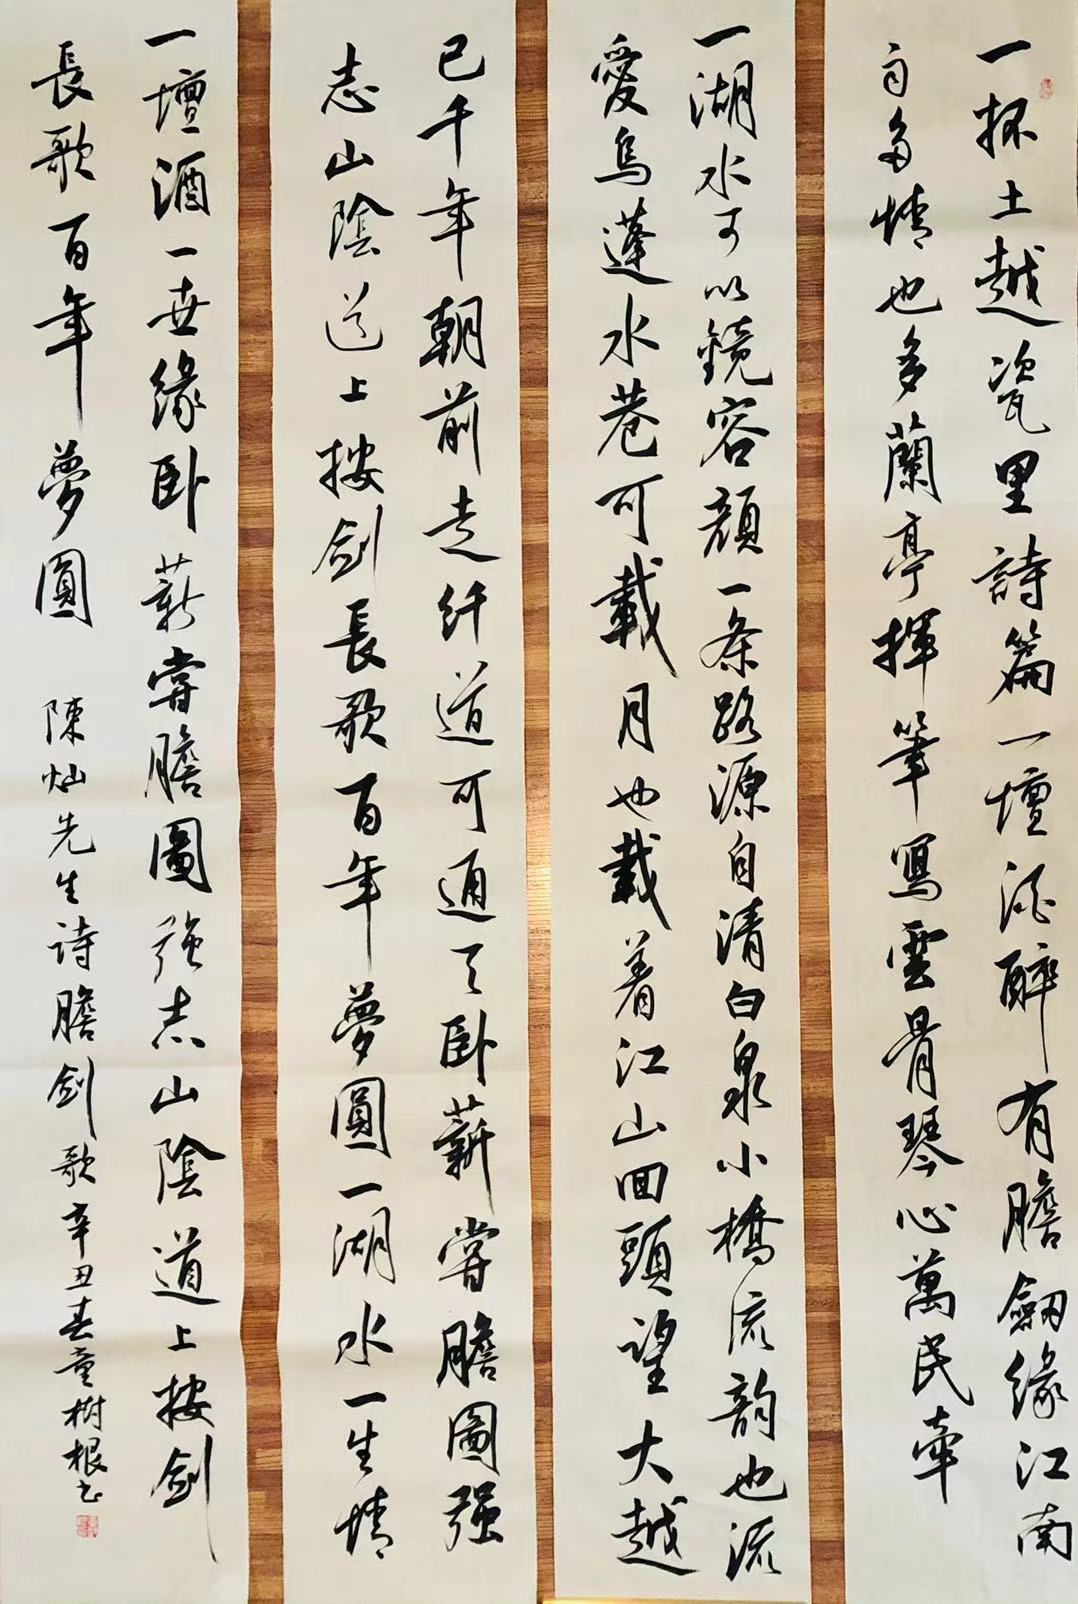 一抔土越瓷里詩篇一壇酒醉有膽劍緣江南
自多情也多蘭亭揮筆寫雲骨琴心萬民牽
一湖水可以鏡容顏一条路源自清白泉小橋流韵也流
愛烏蓬水巷可載月也載着江山回頭望大越
已千年朝前走纤道可通天卧薪嘗膽圖强
志山陰道上按劍長歌百年夢圓一湖水一生情
一壇酒一世緣卧薪嘗膽圖强志山陰道上按劍
長歌百年夢圓
陳灿先生詩膽劍歌辛丑春童樹根书